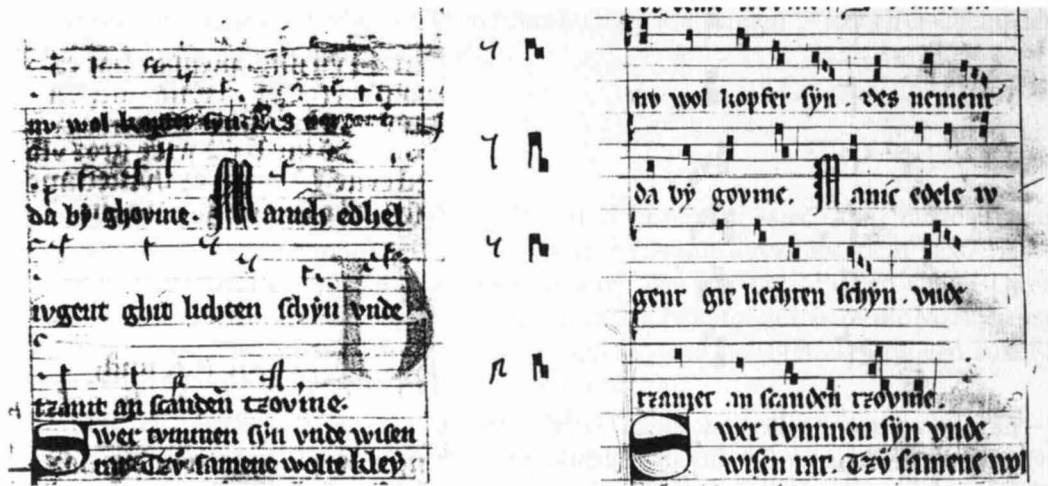 nv wol kopfer syn
da bÿ ghovine. Manich edhel
ivgent ghit lichten schÿn vnde
tzamt an scanden tzovme.
Swer tvmmen sÿn vnde wisen
mr. Tzv samene wolte kleÿ
nv wol kopfer sÿn. des nement
da bÿ govme. Manic edele iv
gent git liechten schÿn. vnde
tzamet an scanden tzovme.
Swer tvmmen sÿn vnde
wisen mr. Tzv samene wol